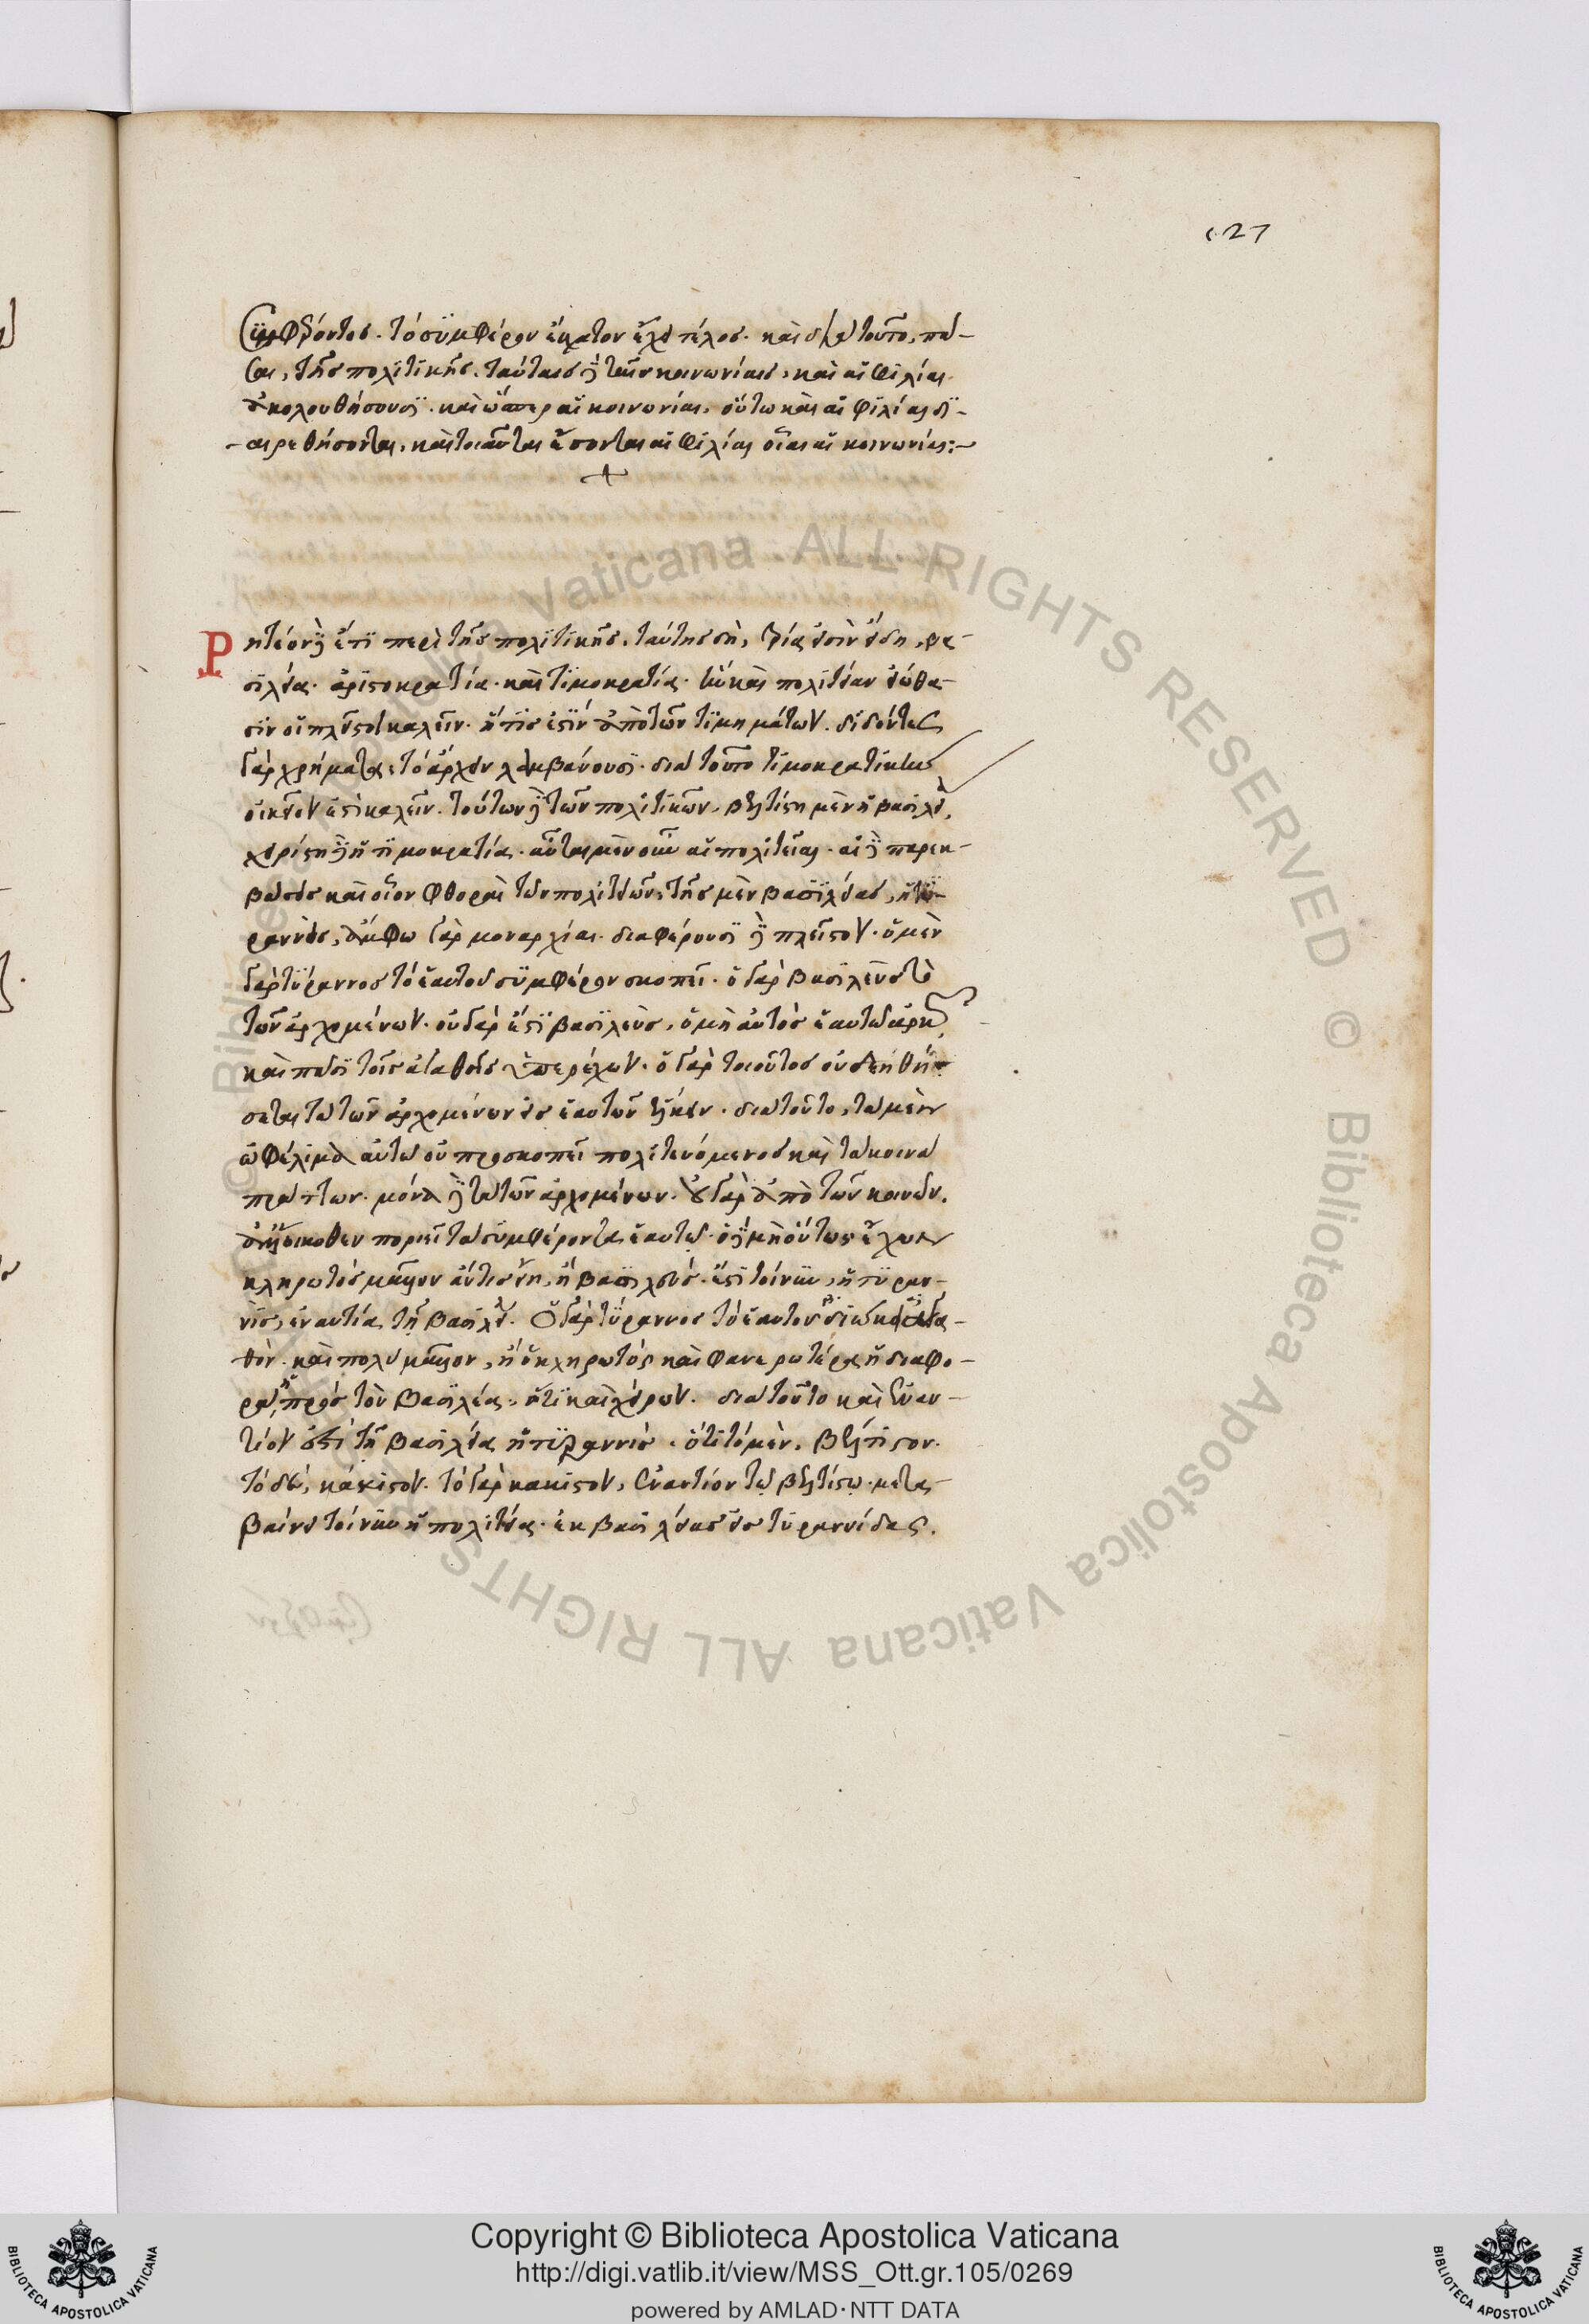 127
συμφέροντος. τὸ συμφέρον ἕκαστον ἔχει τέλος. καὶ διὰ τοῦτο, πά-
σαι, τῆς πολιτικῆς. ταύταις δὲ ταῖς κοινωνίαις, καὶ αἱ φιλίαι
ἀκολουθήσουσι. καὶ ὥσπερ αἱ κοινωνίαι, οὕτω καὶ αἱ φιλίαι δι-
-αιρεθήσονται, καὶ τοιαῦται ἔσονται αἱ φιλίαι οἷαι αἱ κοινωνίαι:-
Ρητέον δὲ ἔτι περὶ τῆς πολιτικῆς. ταύτης δὴ, τρία εἰσὶν εἴδη, βα-
σιλεία. ἀριστοκρατία. καὶ τιμοκρατία. ἣν καὶ πολιτείαν εἰώθα-
σιν οἱ πλεῖστοι καλεῖν. ἥτις ἐστὶν ἀπὸ τῶν τιμημάτων. διδόντες
γὰρ χρήματα, τὸ ἄρχειν λαμβάνουσι. διὰ τοῦτο τιμοκρατικὴν
οἰκεῖον ἐστὶ καλεῖν. τούτων δὲ τῶν πολιτικῶν, βελτίστη μὲν ἡ βασιλεία,
χειρίστη δὲ ἡ τιμοκρατία. αὗται μὲν οὖν αἱ πολιτεῖαι. αἱ δὲ παρεκ-
βάσεις καὶ οἷον φθοραὶ τῶν πολιτειῶν, τῆς μὲν βασιλείας, ἡ τυ-
ραννὶς, ἄμφω γὰρ μοναρχίαι. διαφέρουσι δὲ πλεῖστον. ὁ μὲν
γὰρ τύραννος τὸ ἑαυτοῦ συμφέρον σκοπεῖ. ὁ γὰρ βασιλεὺς τὸ
τῶν ἀρχομένων. οὐ γάρ ἐστι βασιλεὺς, ὁ μὴ αὐτὸς ἑαυτῷ ἀρκῶν
καὶ πᾶσι τοῖς ἀγαθοῖς ὑπερέχων. ὁ γὰρ τοιοῦτος οὐ δεηθή-
σεται τὰ τῶν ἀρχομένων εἰς ἑαυτὸν ἕλκειν. διὰ τοῦτο, τὰ μὲν
ὠφέλιμα αὐτῷ οὐ προσκοπεῖ πολιτευόμενος καὶ τὰ κοινὰ
πράττων. μόνα δὲ τὰ τῶν ἀρχομένων. οὐ γὰρ ἀπὸ τῶν κοινῶν,
ἀλλ' οἴκοθεν ποριεῖ τὰ συμφέροντα ἑαυτῷ. ὁ δὲ μὴ οὕτως ἔχων
κληρωτὸς μᾶλλον ἄν τις εἴη, ἢ βασιλεύς. ἔστι τοίνυν, ἡ τυραν-
νὶς, ἐναντία τῇ βασιλείᾳ. Ὁ γὰρ τύραννος τὸ ἑαυτοῦ διώκει ἀγα-
θόν. καὶ πολὺ μᾶλλον, ἢ ὁ κληρωτός καὶ φανερωτέρα ἡ διαφο-
ρὰ, ἡ πρὸς τὸν βασιλέα, ὅτι καὶ χεῖρων. διὰ τοῦτο καὶ ἐναν-
τίον ἐστὶ τῇ βασιλείᾳ ἡ τυραννὶς. ὅτι τὸ μὲν, βέλτιστον.
τὸ δὲ, κάκιστον. τὸ γὰρ κάκιστον, ἐναντίον τῷ βελτίστῳ. μετα-
βαίνει τοίνυν ἡ πολιτεία. ἐκ βασιλείας εἰς τυραννίδας.
Copyright © Biblioteca Apostolica Vaticana
http://digi.vatlib.it/view/MSS_Ott.gr.105/0269
powered by AMLAD·NTT DATA